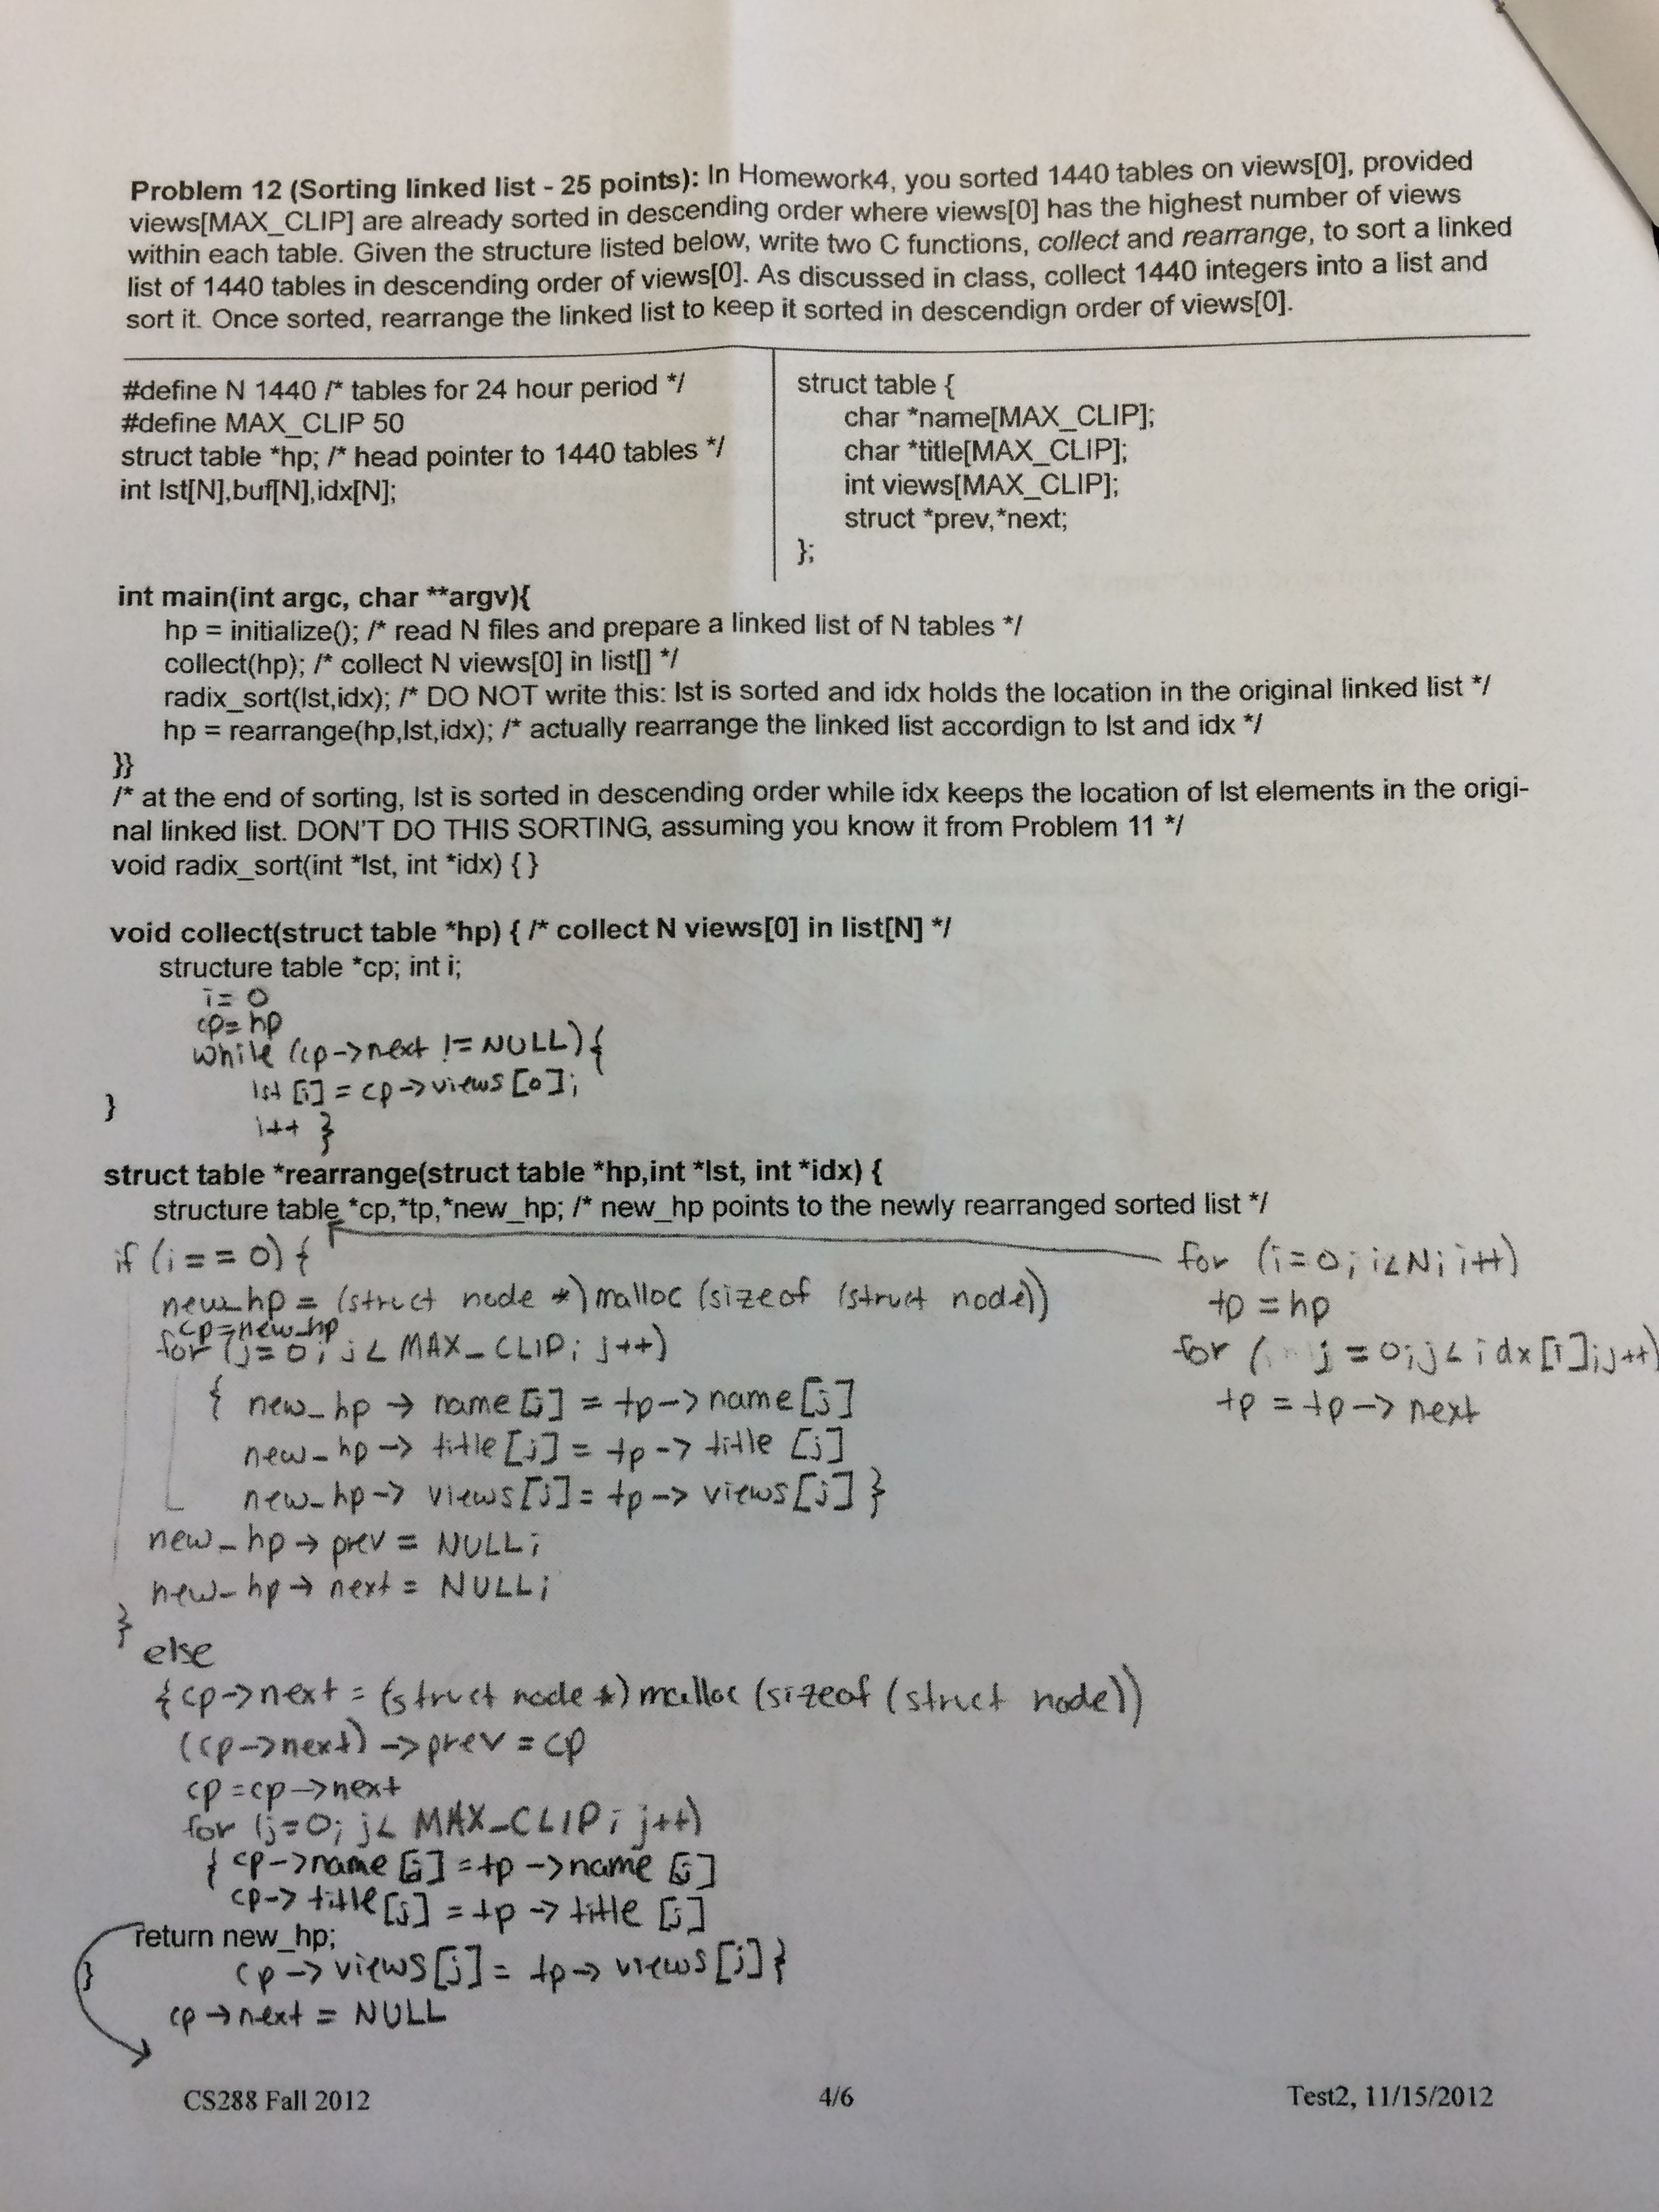 Problem 12 (Sorting linked list - 25 points): In Homework4, you sorted 1440 tables on views[0], provided
views[MAX_CLIP] are already sorted in descending order where views[0] has the highest number of views
within each table. Given the structure listed below, write two C functions, collect and rearrange, to sort a linked
list of 1440 tables in descending order of views[0]. As discussed in class, collect 1440 integers into a list and
sort it. Once sorted, rearrange the linked list to keep it sorted in descendign order of views[0].
#define N 1440 /* tables for 24 hour period */
#define MAX_CLIP 50
struct table *hp; /* head pointer to 1440 tables */
int lst[N],buf[N],idx[N];
struct table {
char *name[MAX_CLIP];
char *title[MAX_CLIP];
int views[MAX_CLIP];
struct *prev,*next;
};
int main(int argc, char **argv){
hp = initialize(); /* read N files and prepare a linked list of N tables */
collect(hp); /* collect N views[0] in list[] */
radix_sort(lst,idx); /* DO NOT write this: lst is sorted and idx holds the location in the original linked list */
hp = rearrange(hp,lst,idx); /* actually rearrange the linked list accordign to lst and idx */
}}
/* at the end of sorting, lst is sorted in descending order while idx keeps the location of lst elements in the origi-
nal linked list. DON'T DO THIS SORTING, assuming you know it from Problem 11 */
void radix_sort(int *lst, int *idx) { }
void collect(struct table *hp) { /* collect N views[0] in list[N] */
structure table *cp; int i;
i= 0
cp= hp
while (cp->next != NULL) {
lst [i] = cp->views [0];
}
i++ }
struct table *rearrange(struct table *hp,int *lst, int *idx) {
structure table *cp,*tp,*new_hp; /* new_hp points to the newly rearranged sorted list */
for (i=0; i<N; i++)
tp = hp
for ( j = 0; j < idx [i]; j++)
tp = tp -> next
if (i == 0) {
new_hp = (struct node *) malloc (sizeof (struct node))
cp=new_hp
for (j=0; j < MAX_CLIP; j++)
{ new_hp -> name [j] = tp -> name [j]
new_hp -> title [j] = tp -> title [j]
new_hp -> views [j] = tp -> views [j] }
new_hp -> prev = NULL;
new_hp -> next = NULL;
}
else
{ cp->next = (struct node *) malloc (sizeof (struct node))
(cp->next) ->prev = cp
cp = cp->next
for (j=0; j < MAX_CLIP; j++)
{ cp->name [j] = tp ->name [j]
cp-> title [j] = tp -> title [j]
return new_hp;
cp -> views [j] = tp -> views [j] }
}
cp -> next = NULL
CS288 Fall 2012
4/6
Test2, 11/15/2012